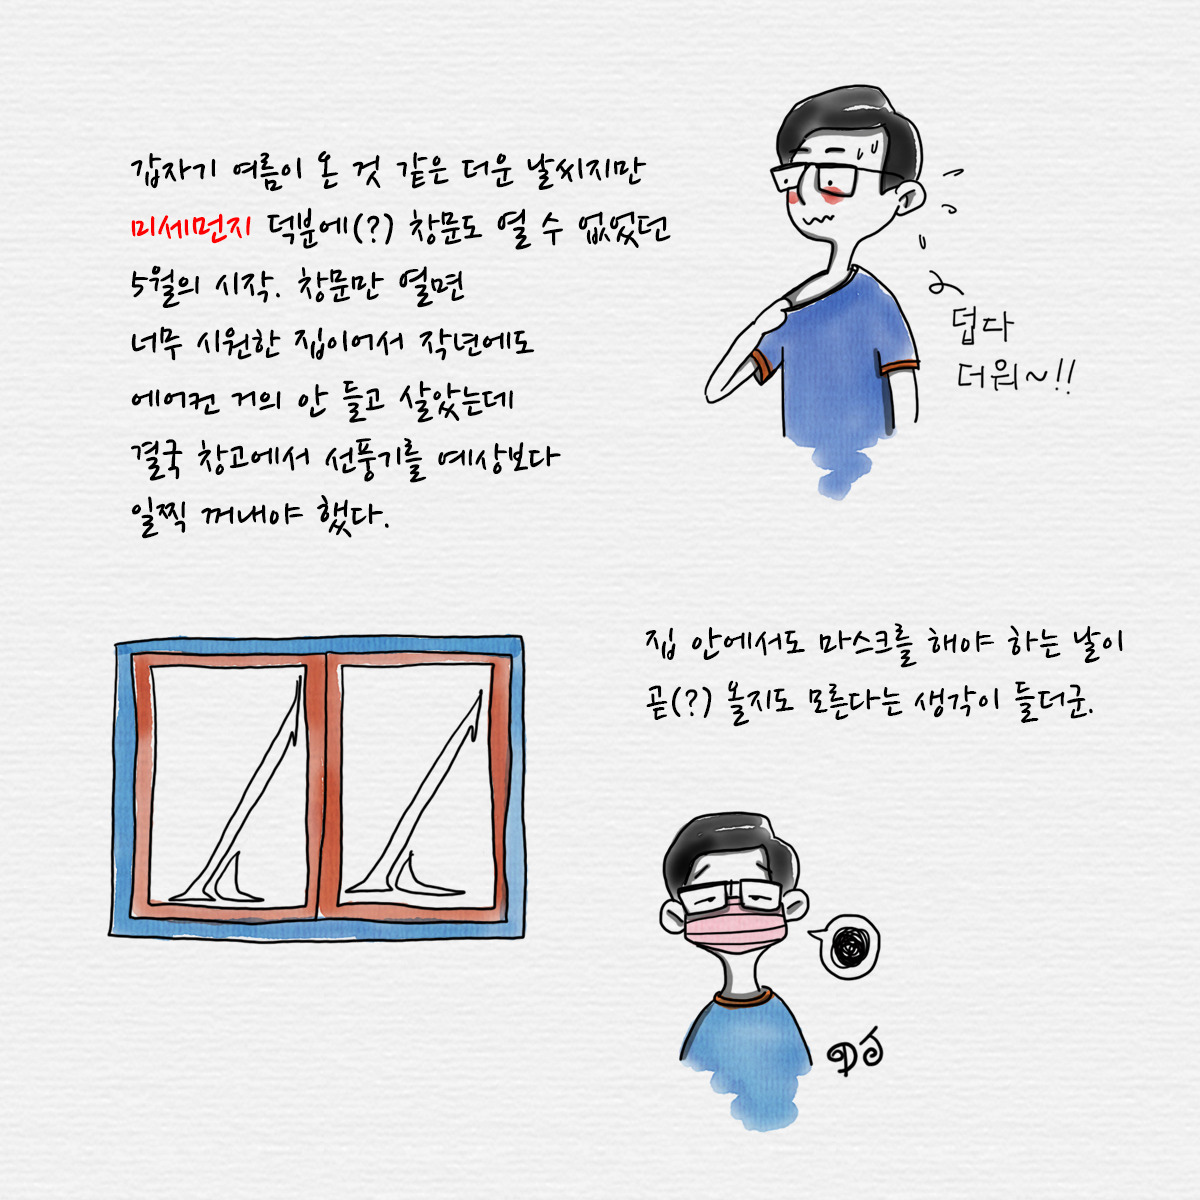 갑자기 여름이 온 것 같은 더운 날씨지만
미세먼지 덕분에(?) 창문도 열 수 없었던
5월의 시작. 창문만 열면
너무 시원한 집이어서 작년에도
에어컨 거의 안 틀고 살았는데
결국 창고에서 선풍기를 예상보다
일찍 꺼내야 했다.
덥다
더워~!!
집 안에서도 마스크를 해야 하는 날이
곧(?) 올지도 모른다는 생각이 들더군.